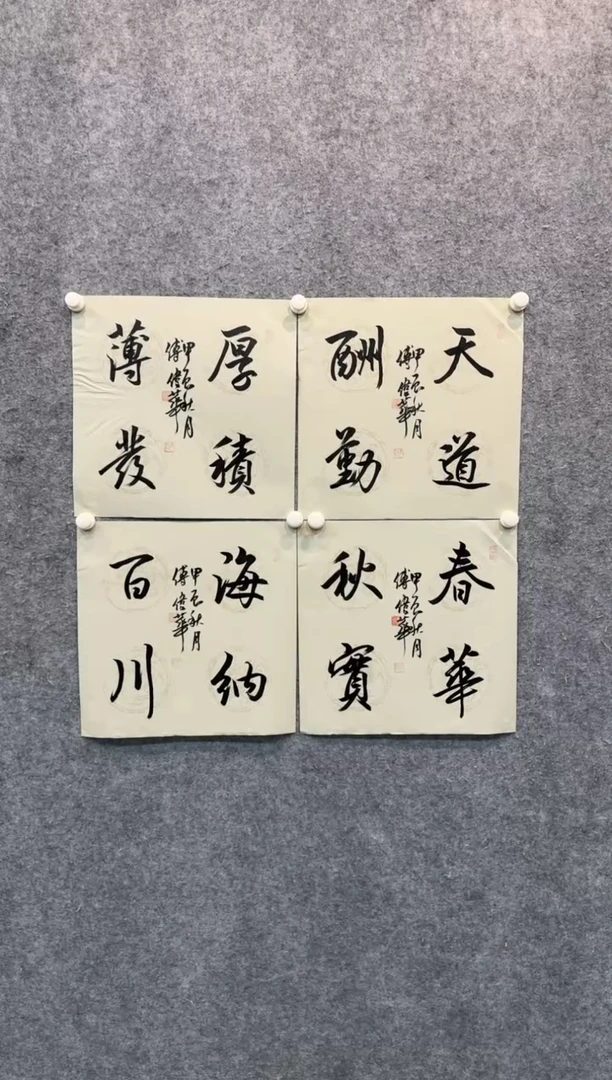 天道
酬勤
甲辰秋月
傅
華
厚積
薄發
甲辰秋月
傅
華
春華
秋實
甲辰秋月
傅
華
海納
百川
甲辰秋月
傅
華